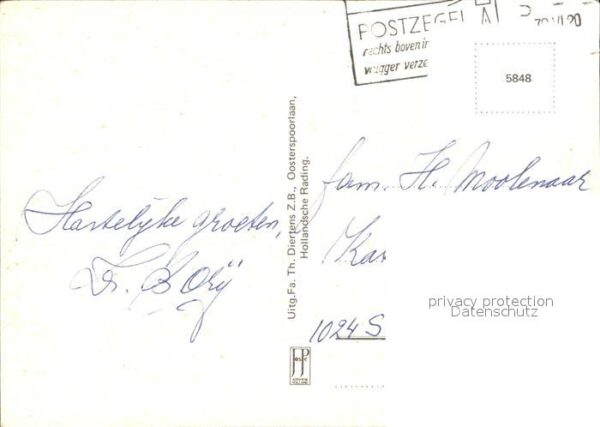 POSTZEGEL
rechts boven in
vlugger verze
5848
Hartelijke groeten,
Uitg.Fa. Th. Diertens Z.B., Oosterspoorlaan,
Hollandsche Rading.
fam. H. Moolenaar
Kas
1024 S
privacy protection
Datenschutz